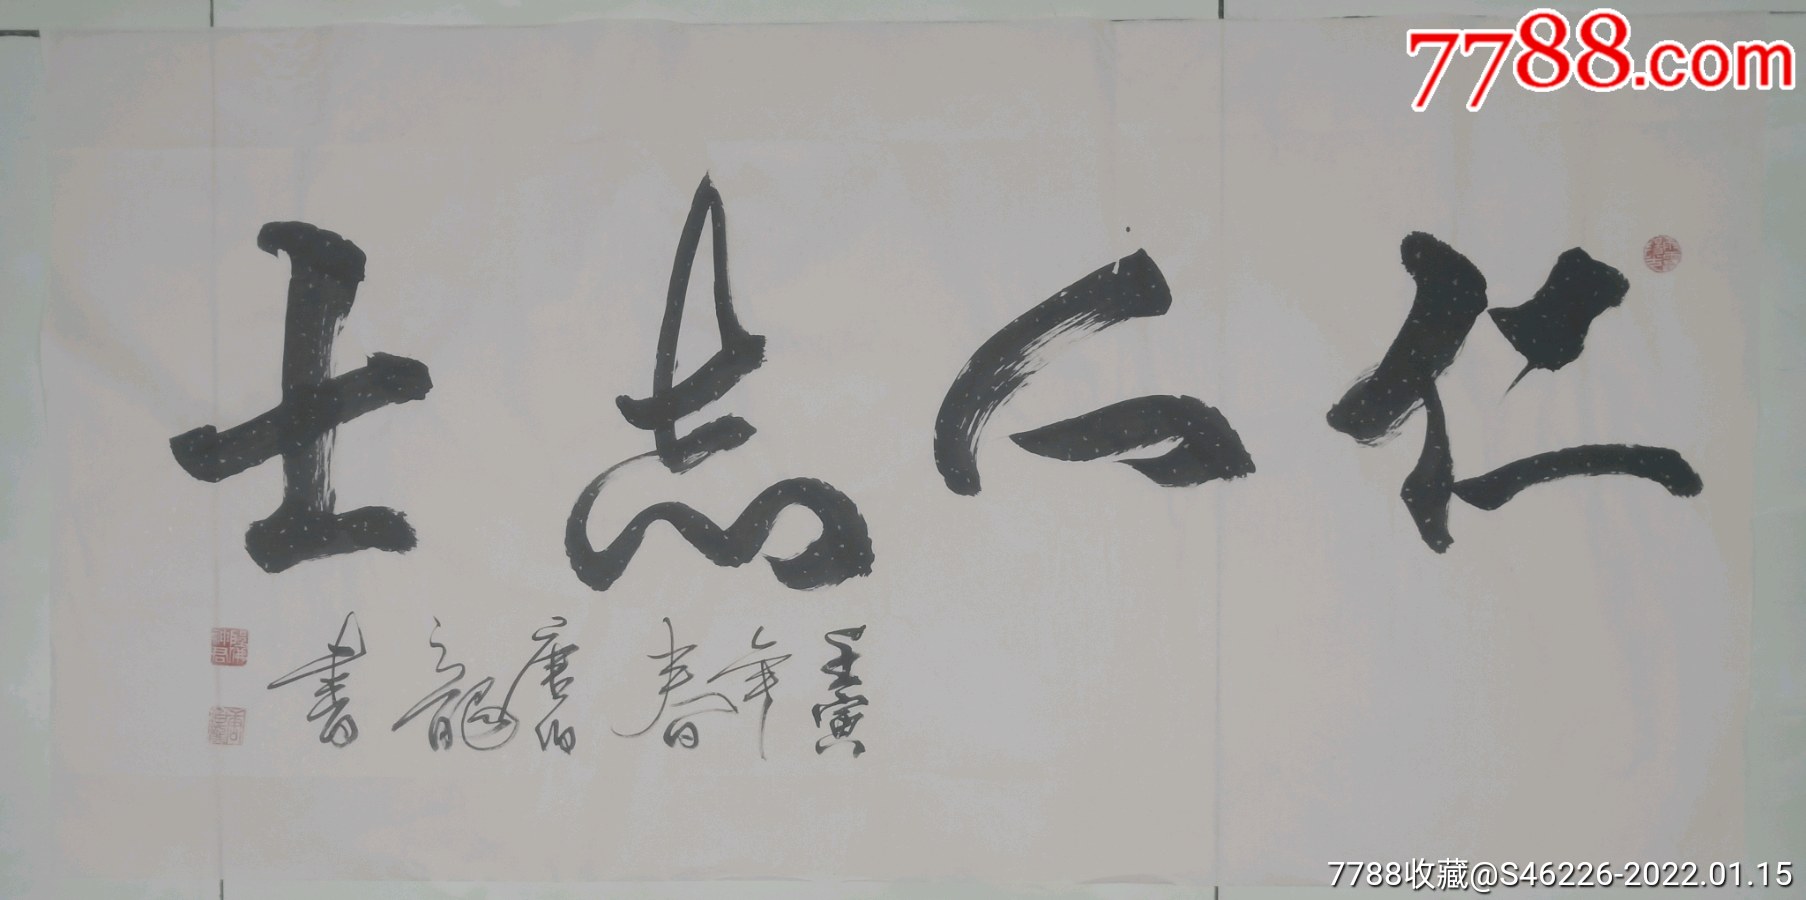 7788.com
仁人志士
壬寅
年春
唐伯
龍
書
7788收藏@S46226-2022.01.15